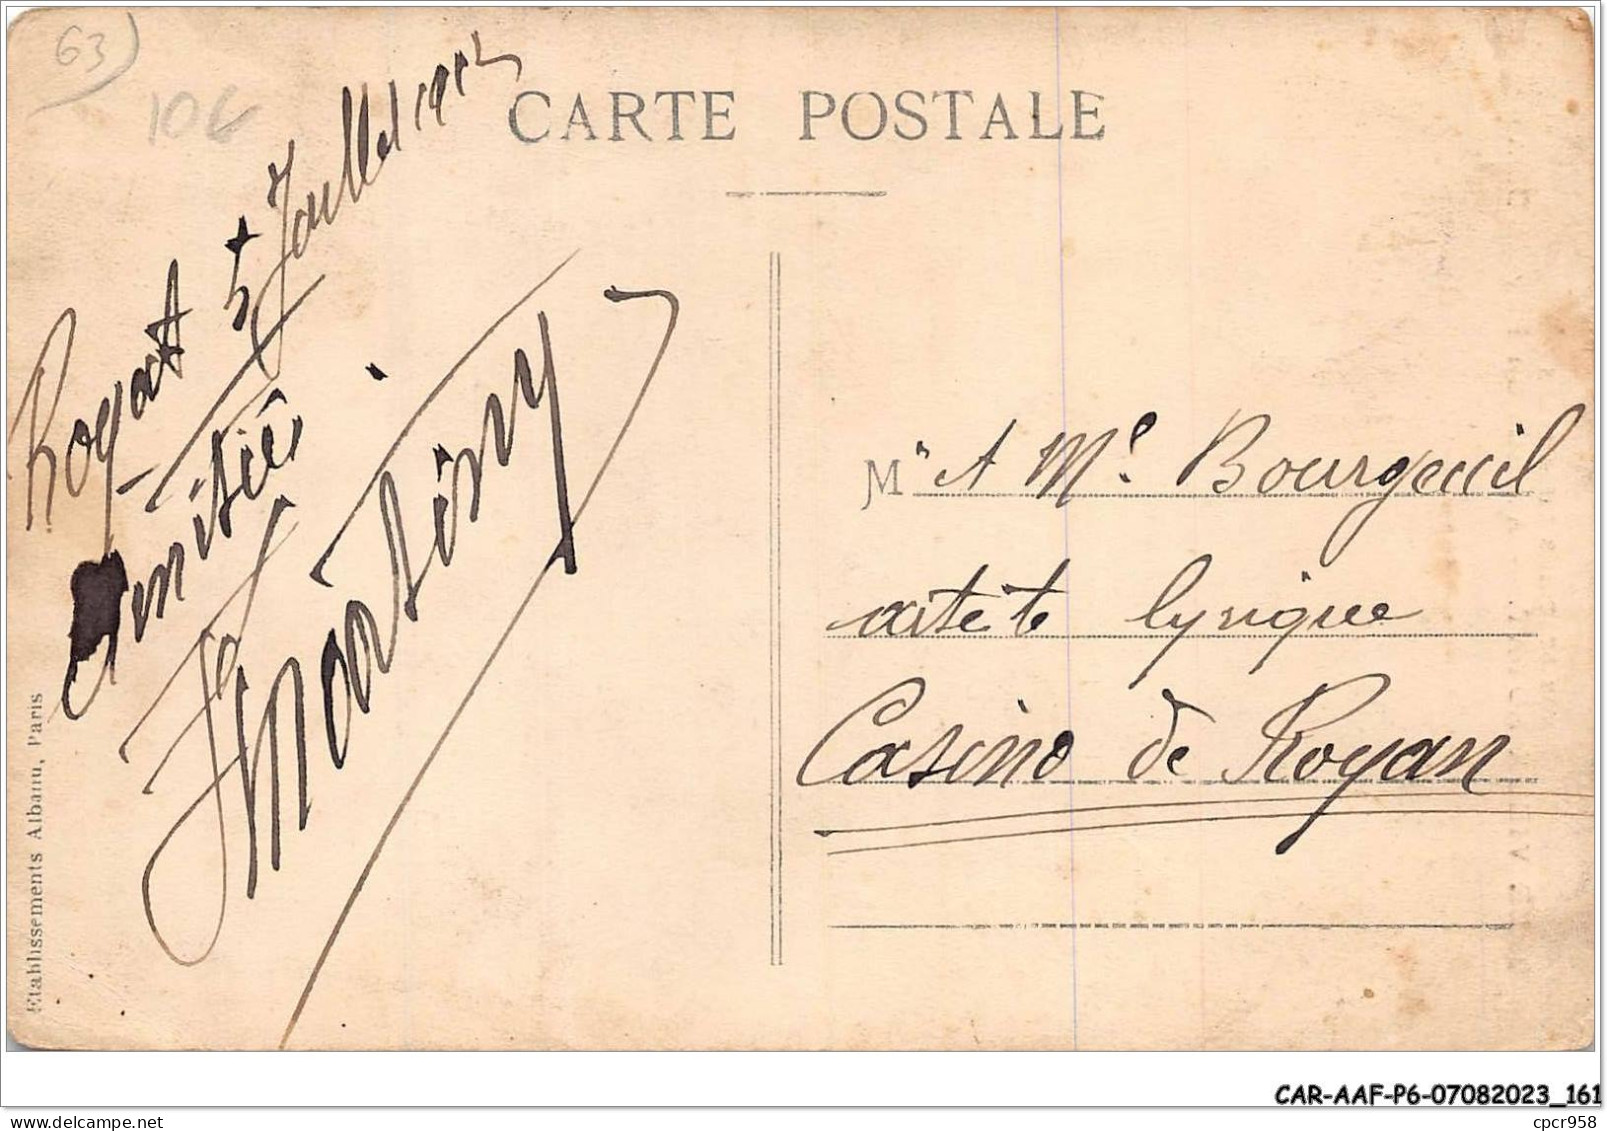 63
10€
CARTE POSTALE
Royat 5 Juillet 1912
Amitié
Martiny
M" A Ml. Bourgeuil
artiste lyrique
Casino de Royan
Etablissements Albaum, Paris
CAR-AAF-P6-07082023_161
www.delcampe.net
cpcr958